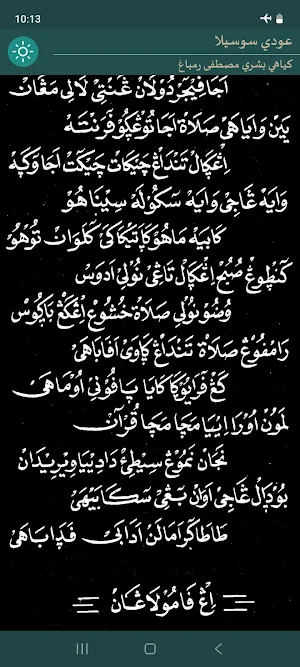 10:13
عودي سوسيلا
كياهي بشري مصطفى رمباغ
اَجَا فِيْجَرْ دُوْلَانْ غَنْتِيْ لَالِيْ مَڠَانْ
يَيْن وَايَاهَيْ صَلَاةْ اَجَا نُوْڠْڮُوْ فَرِنْتَهْ
اِڠْڮَالْ تَنْدَاڠْ چَيْكَاتْ چَيْكَتْ اَجَا وَڮَهْ
وَايَهْ ڠَاجِيْ وَايَهْ سَكُوْلَهْ سِيْنَاهُوْ
كَابَيْهْ مَاهُوْ ڮَاتَيْكَاكَيْ كَلَاوَانْ تُوْهُوْ
كَنْطَوْڠْ صُبُحْ اِڠْڮَالْ تَاڠِيْ نُوْلِيْ اَدَوْسْ
وُضُوْ نُوْلِيْ صَلَاةْ خُشُوْعْ اِڠْكَڠْ بَاڮُوْسْ
رَامْفُوْڠْ صَلَاةْ تَنْدَاڠْ ڮَاوَيْ اَفَابَاهَيْ
كَڠْ فَرَايَوْڮَا كَايَا پَافُوْنِيْ اَوْمَاهَيْ
لَمَوْنْ اَوْرَا اِيْيَا مَچَا مَچَا قُرْآنْ
نَجَانْ نَمَوْڠْ سِيْطِيْٓ دَادِيْيَا وِيْرِيْدَانْ
بُوْدَالْ ڠَاجِيْ اَوَانْ بَڠِيْ سَكَابَيْهَيْ
طَاطَا كْرَامَا لَنْ اَدَابَيْ فَدَا بَاهَيْ
اِڠْ فَامُوْلَاڠَانْ